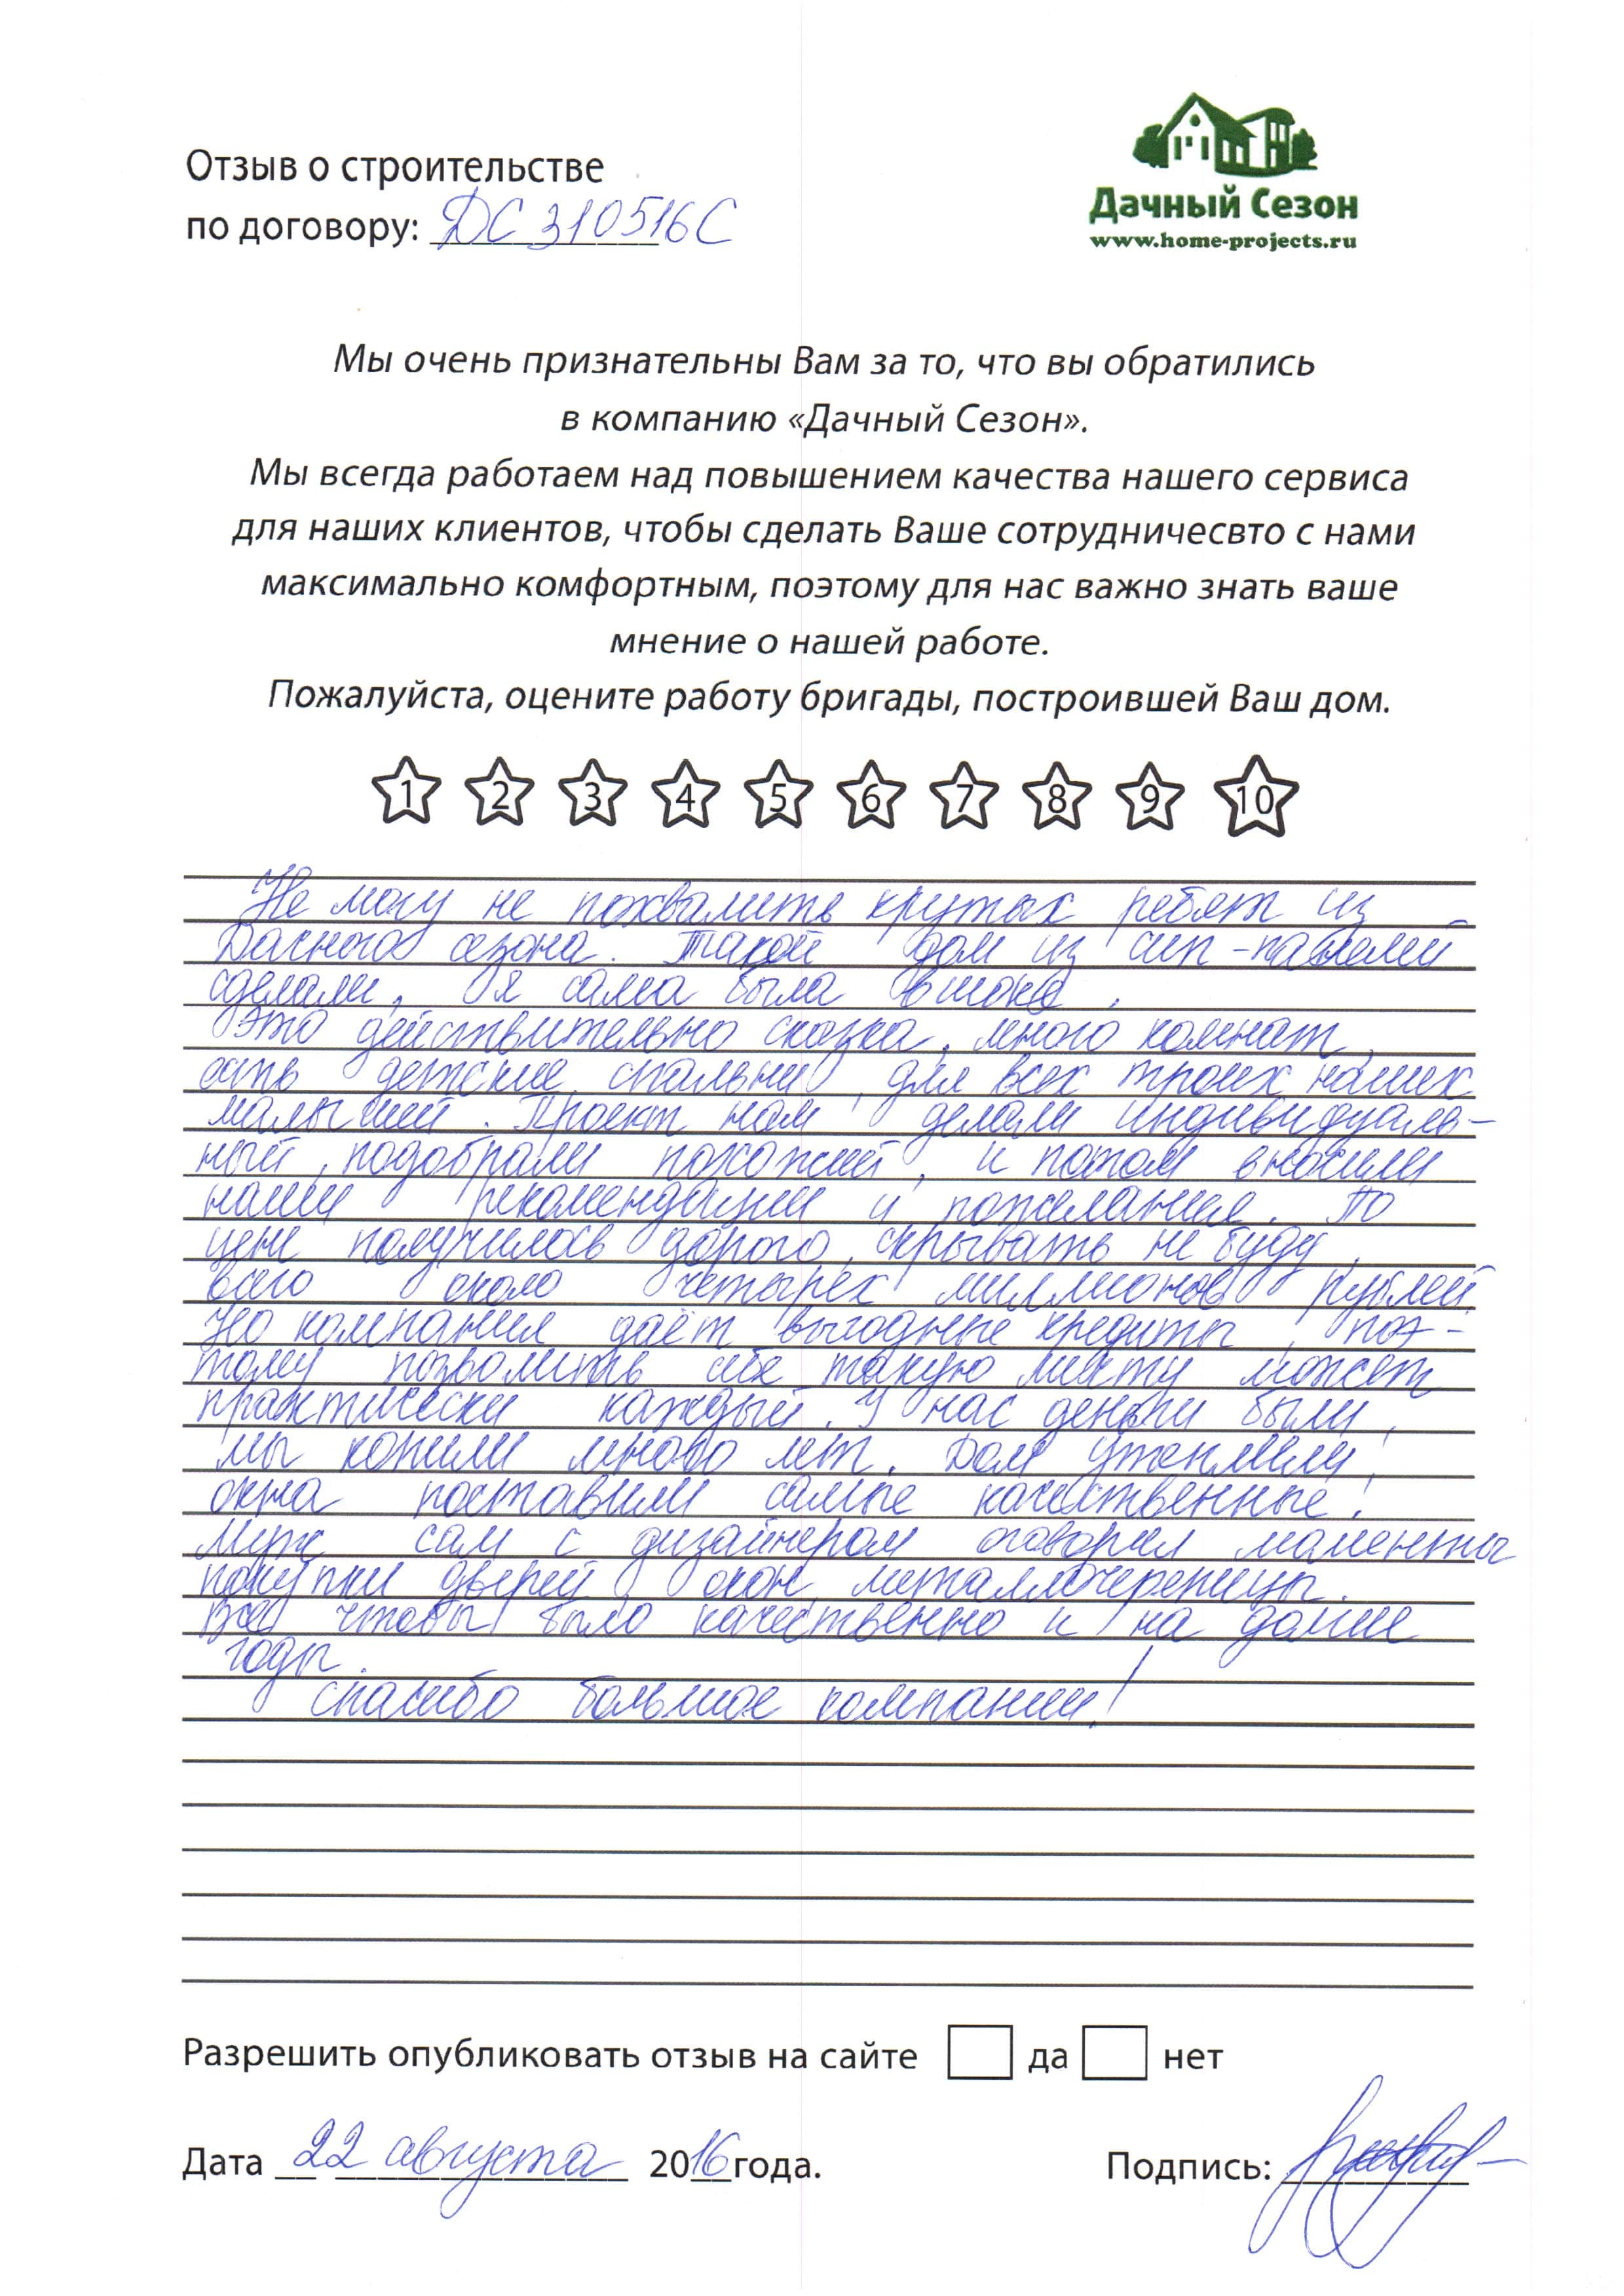 Отзыв о строительстве
по договору: ДС 310516С
Дачный Сезон
www.home-projects.ru
Мы очень признательны Вам за то, что вы обратились
в компанию «Дачный Сезон».
Мы всегда работаем над повышением качества нашего сервиса
для наших клиентов, чтобы сделать Ваше сотрудничесвто с нами
максимально комфортным, поэтому для нас важно знать ваше
мнение о нашей работе.
Пожалуйста, оцените работу бригады, построившей Ваш дом.
1 2 3 4 5 6 7 8 9 10
Не могу не похвалить крутых ребят из
Дачного сезона. Такой дом из сип-панелей
сделали, я сама была в шоке.
Это действительно сказка, много комнат,
есть детские спальни, для всех троих наших
малышей. Проект нам делали индивидуаль-
ный, подобрали похожий, и потом вносили
наши рекомендации и пожелания. По
цене получилось дорого, скрывать не буду,
всего около четырех миллионов рублей.
Но компания даёт выгодные кредиты, поэ-
тому позволить себе такую мечту может
практически каждый. У нас деньги были,
мы копили много лет. Дом утеплили,
окна поставили самые качественные!
Муж сам с дизайнером оговорил моменты
покупки дверей, окон, металлочерепицы.
Все чтобы было качественно и на долгие
годы.
Спасибо большое компании!
Разрешить опубликовать отзыв на сайте да нет
Дата 22 августа 2016 года. Подпись: